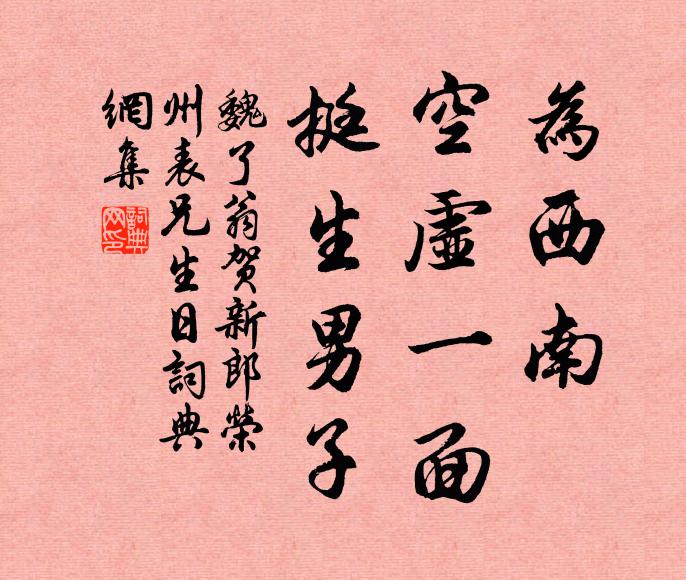 為西南
空虛一面
挺生男子
魏了翁賀新郎榮
州表兄生日詞典
網集
詞典網印